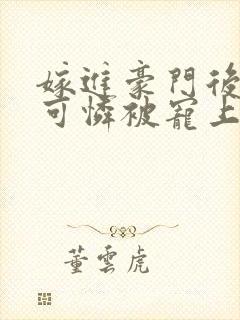 嫁進豪門後
可憐被寵上
董雲虎